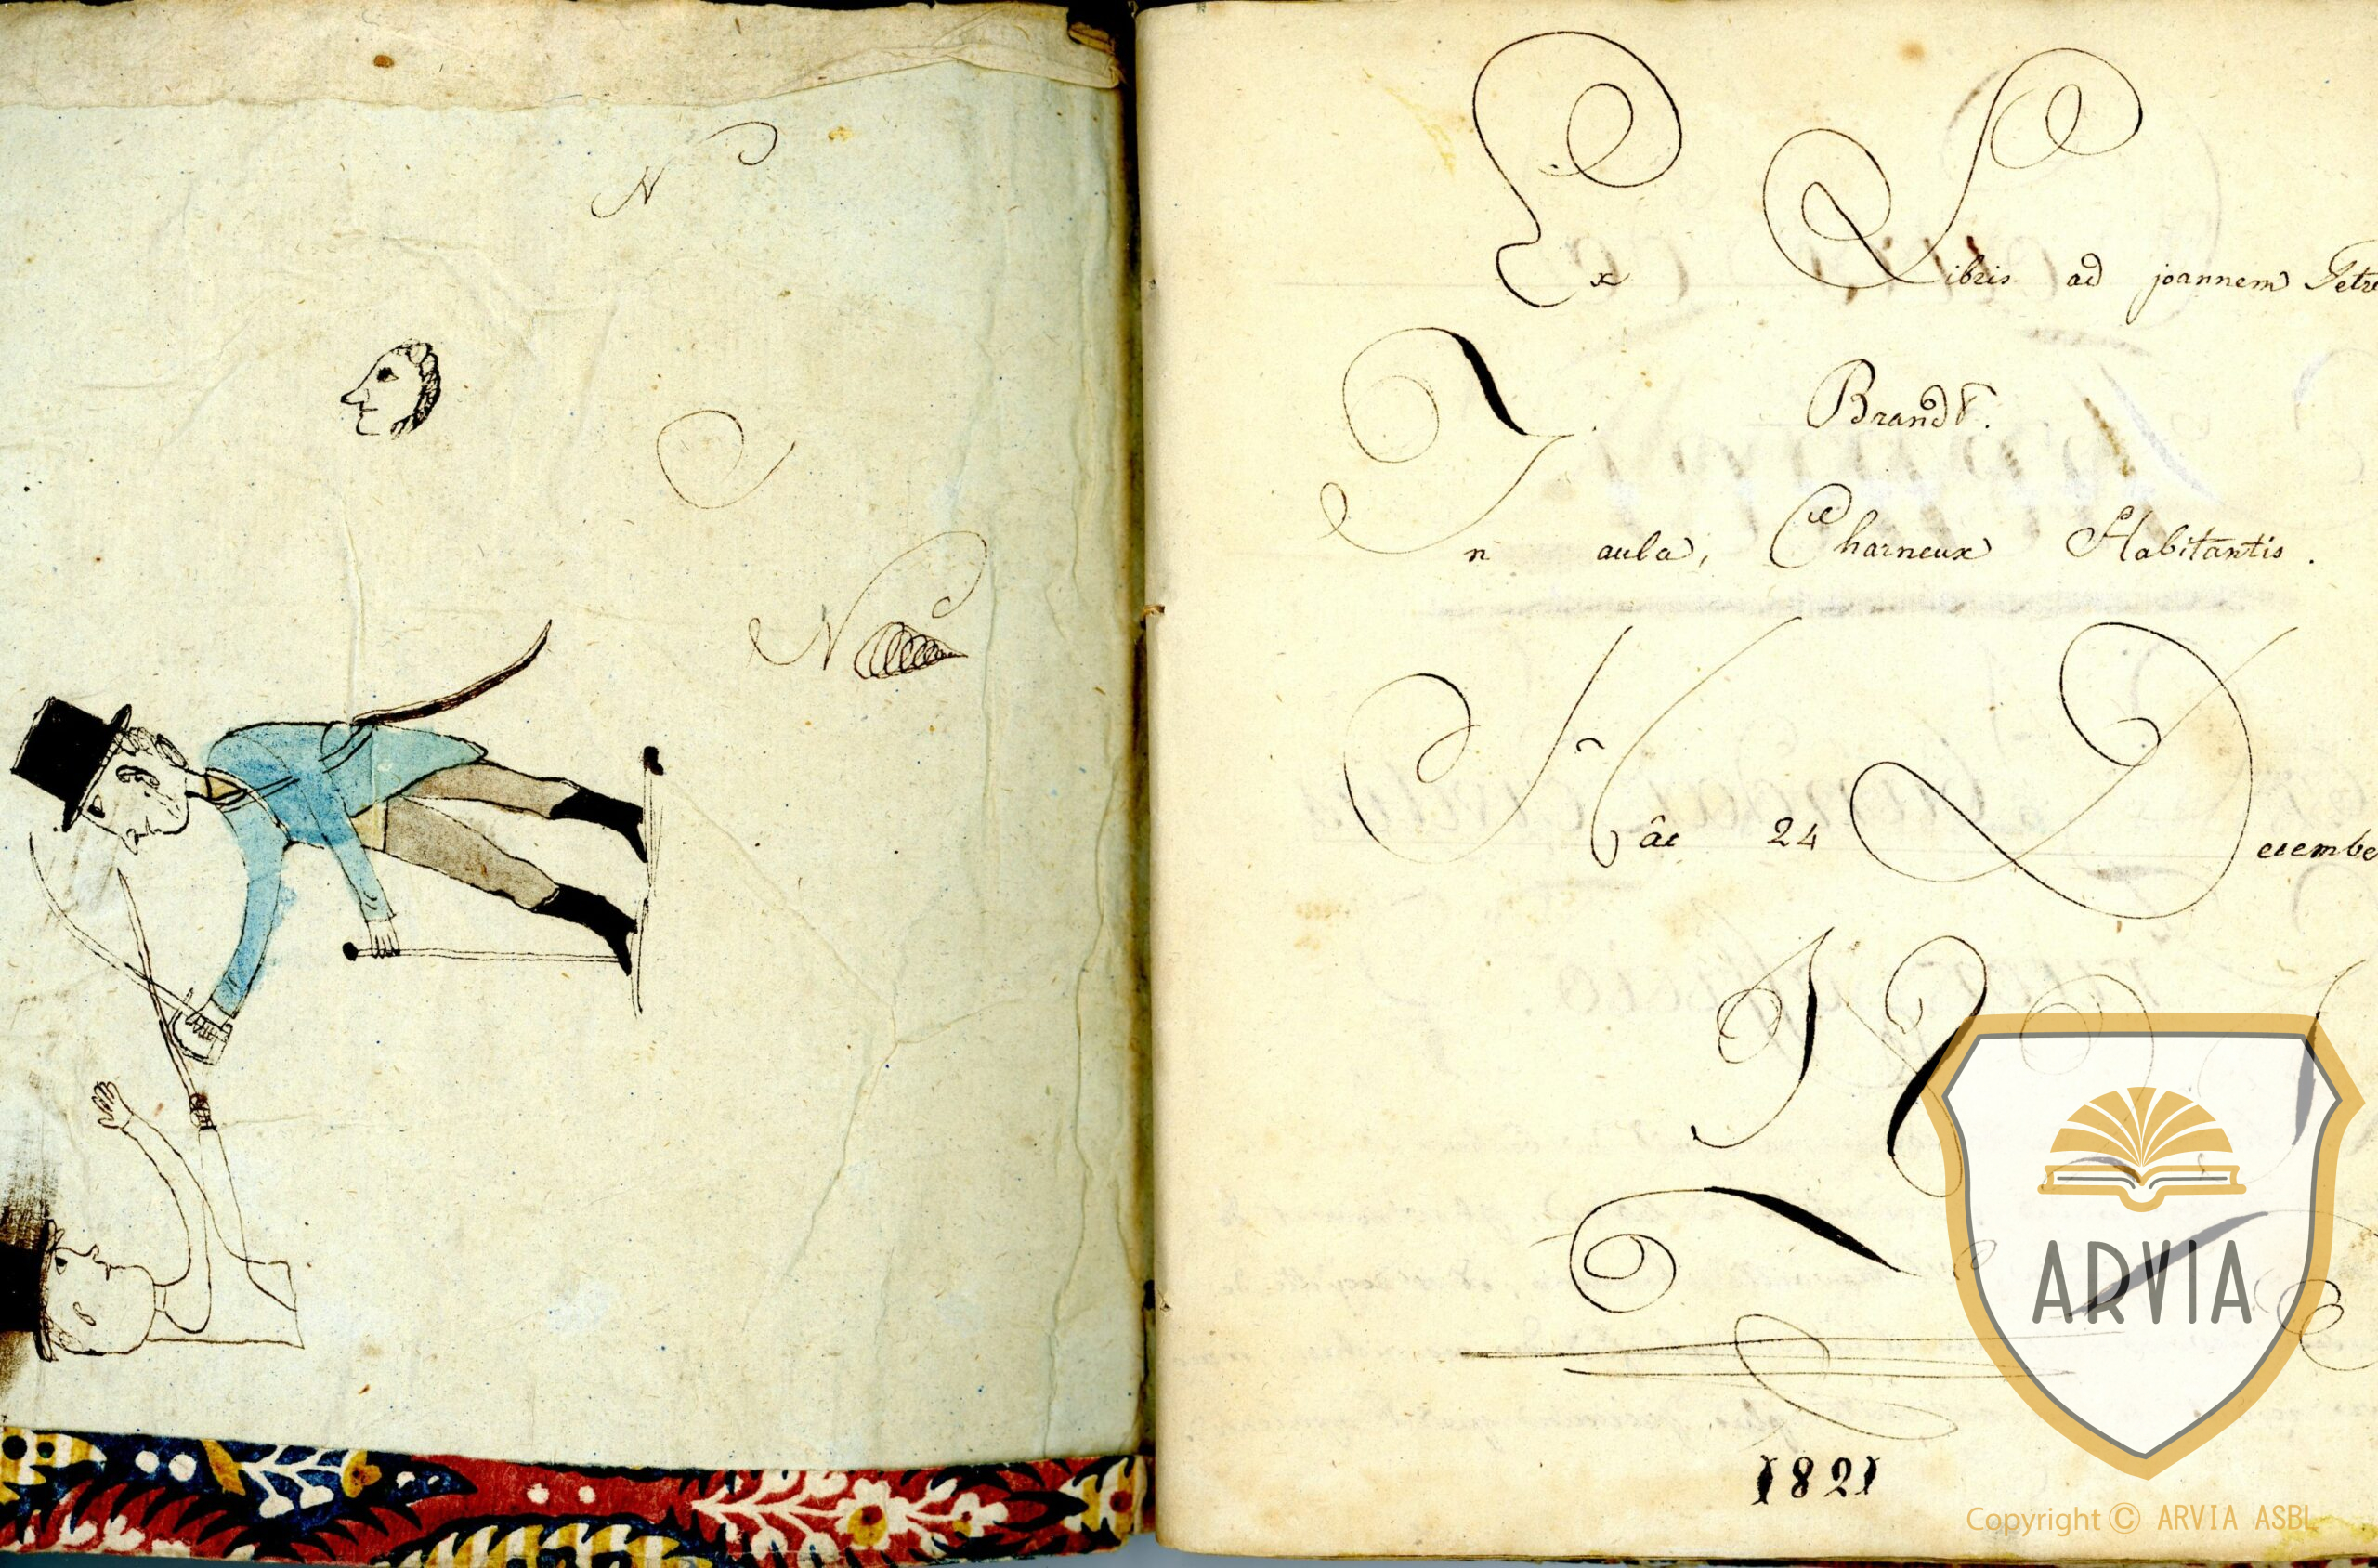 N
N
Ex Libris ad joannem Petre
Brandt.
In aula, Charneux Habitantis.
Hâc 24 Decembe
1821
ARVIA
Copyright © ARVIA ASBL